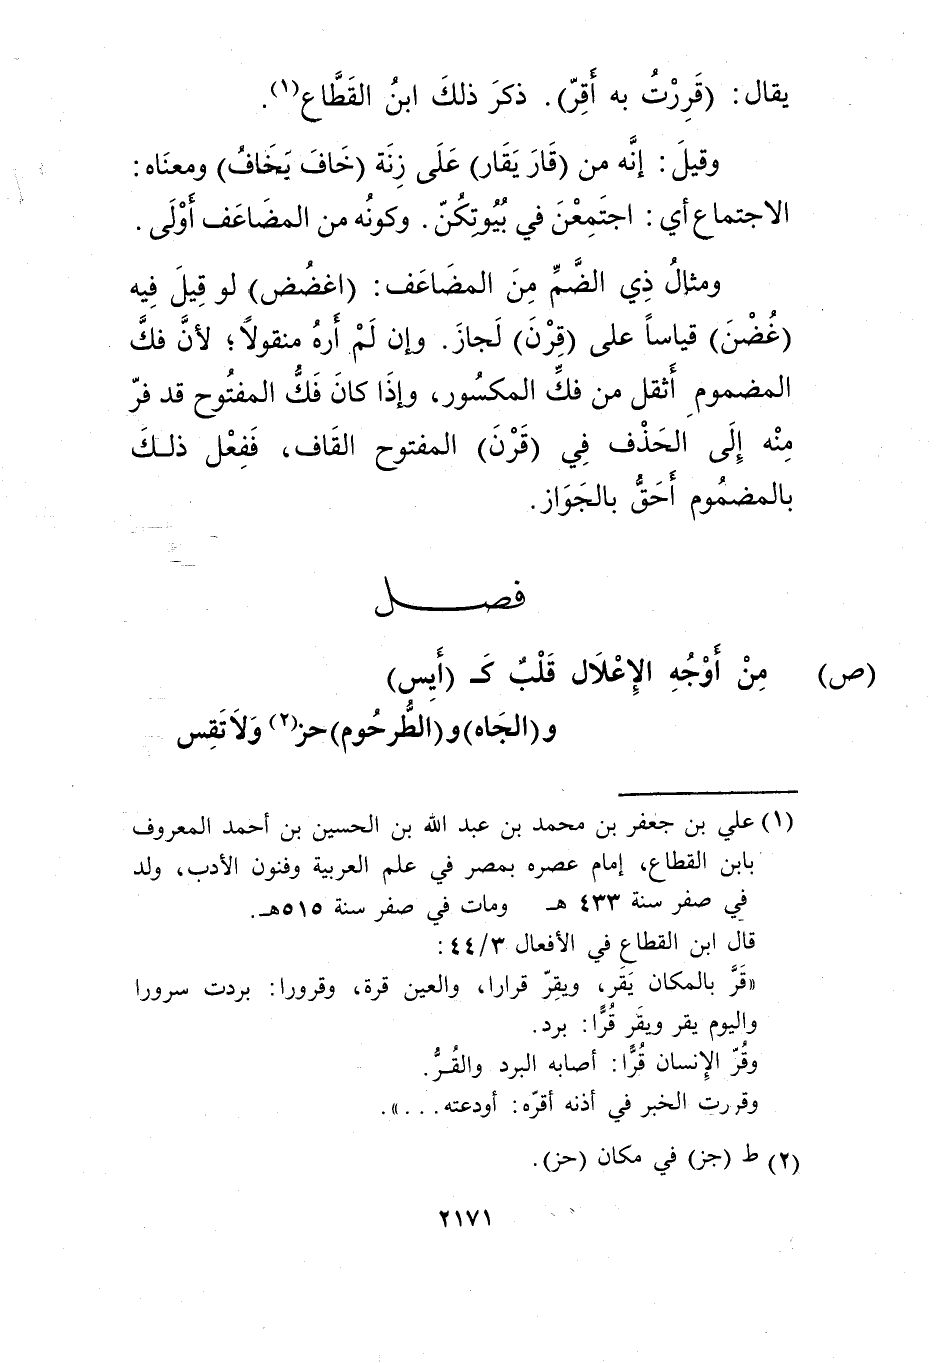 يقال: (قَرِرْتُ به أَقِرّ). ذكرَ ذلكَ ابنُ القَطَّاع(١).
وقيلَ: إنَّه من (قَارَ يَقَار) عَلَى زِنَة (خَافَ يَخَافُ) ومعنَاه:
الاجتماع أي: اجتَمِعْنَ في بُيُوتِكُنّ. وكونُه من المضَاعَف أَوْلَى.
ومثالُ ذِي الضَّمِّ مِنَ المضَاعَف: (اغضُض) لو قِيلَ فِيه
(غُضْنَ) قياساً على (قِرْنَ) لَجازَ. وإن لَمْ أَرهُ منقولاً؛ لأنَّ فكَّ
المضموم أَثقل من فكِّ المكسُور، وإذَا كانَ فَكُّ المفتُوح قد فرّ
مِنْه إِلَى الحَذْف فِي (قَرْنَ) المفتوح القَاف، فَفِعْل ذلكَ
بالمضمُوم أَحَقُّ بالجَوَاز.
فصل
(ص) مِنْ أَوْجُهِ الإِعْلَال قَلْبٌ كَـ (أَيِس)
و(الجَاه) و(الطُّرحُوم) حز(٢) وَلَا تَقِس
(١) علي بن جعفر بن محمد بن عبد الله بن الحسين بن أحمد المعروف
بابن القطاع، إمام عصره بمصر في علم العربية وفنون الأدب، ولد
في صفر سنة ٤٣٣ هـ ومات في صفر سنة ٥١٥هـ.
قال ابن القطاع في الأفعال ٤٤/٣:
«قَرَّ بالمكان يَقَر، ويقِرّ قرارا، والعين قرة، وقرورا: بردت سرورا
واليوم يقر ويقَر قُرًّا: برد.
وقُرّ الإنسان قُرًّا: أصابه البرد والقُرُّ.
وقررت الخبر في أذنه أقرّه: أودعته...».
(٢) ط (جز) في مكان (حز).
٢١٧١